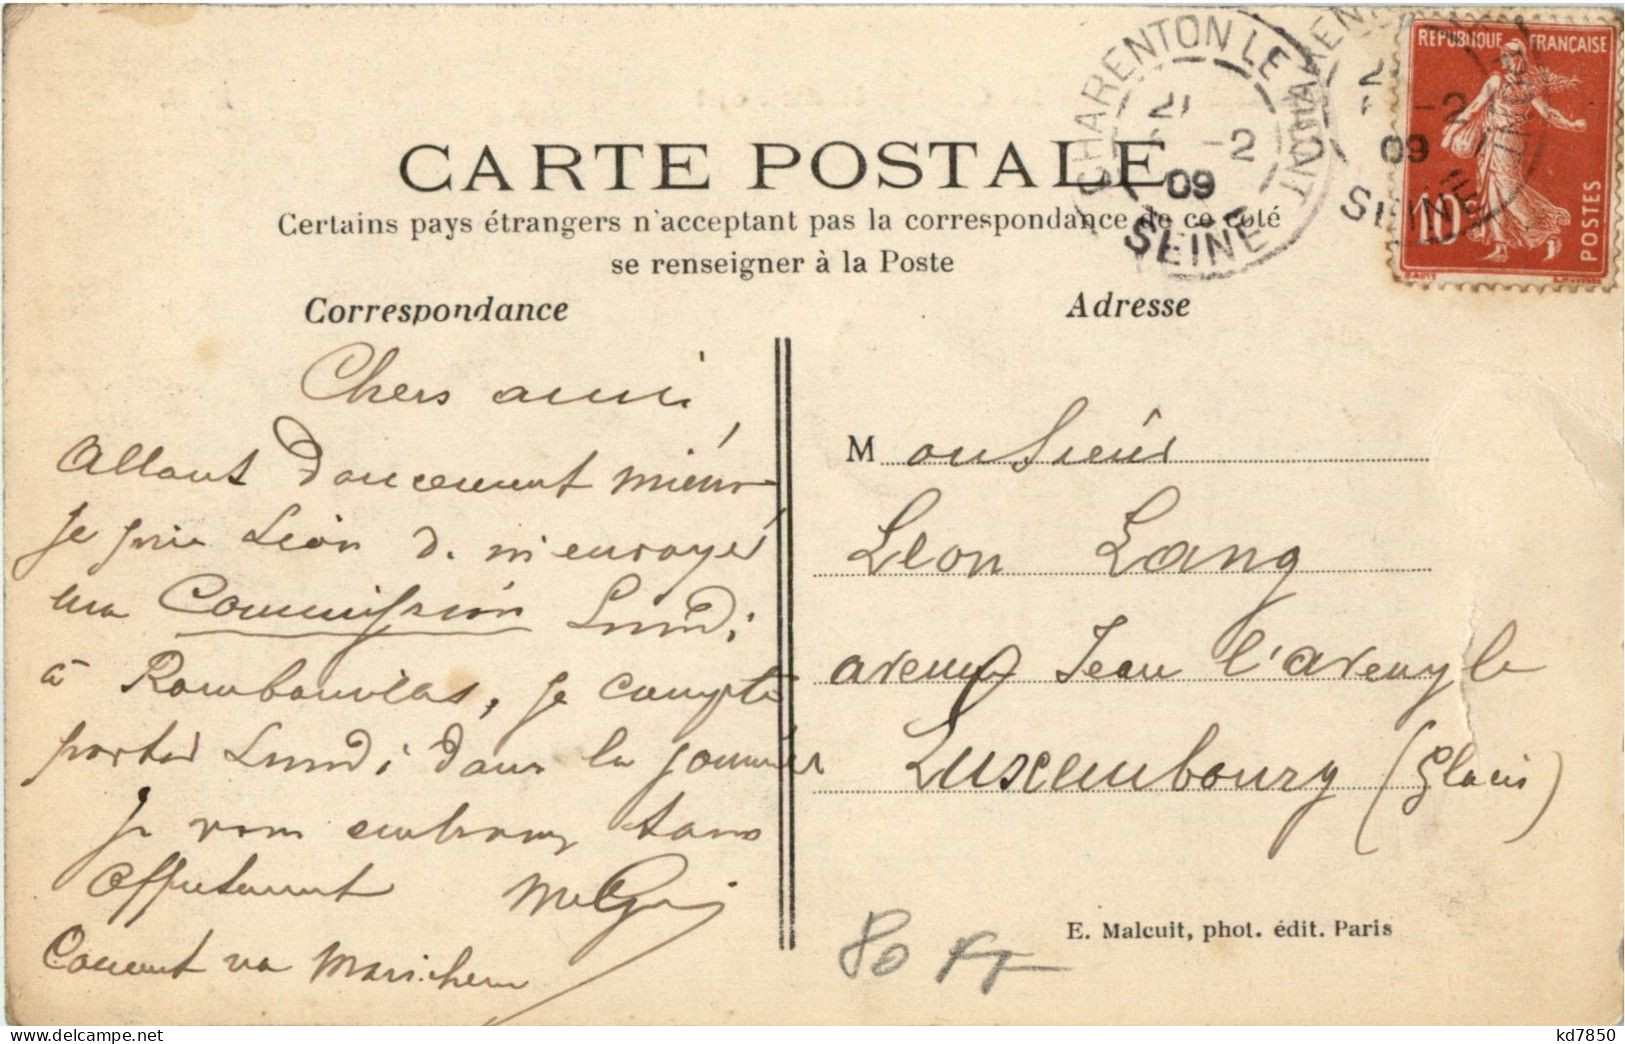 CARTE POSTALE
Certains pays étrangers n'acceptent pas la correspondance de ce côté
se renseigner à la Poste
Correspondance
Adresse
CHARENTON LE PONT
21 -2
09
SEINE
-2
09
SEINE
REPUBLIQUE FRANÇAISE
10
POSTES
Chers ami,
Allant doucement mieux
je prie Léon d. m'envoyer
ma Commission Lundi
à , je compte
partir Lundi dans la journée
Je vous embrasse tous
Comment va
Monsieur
Leon Lang
avenue Jean l'aveugle
Luxembourg (Glacis)
80 FF
E. Malcuit, phot. édit. Paris
kd7850